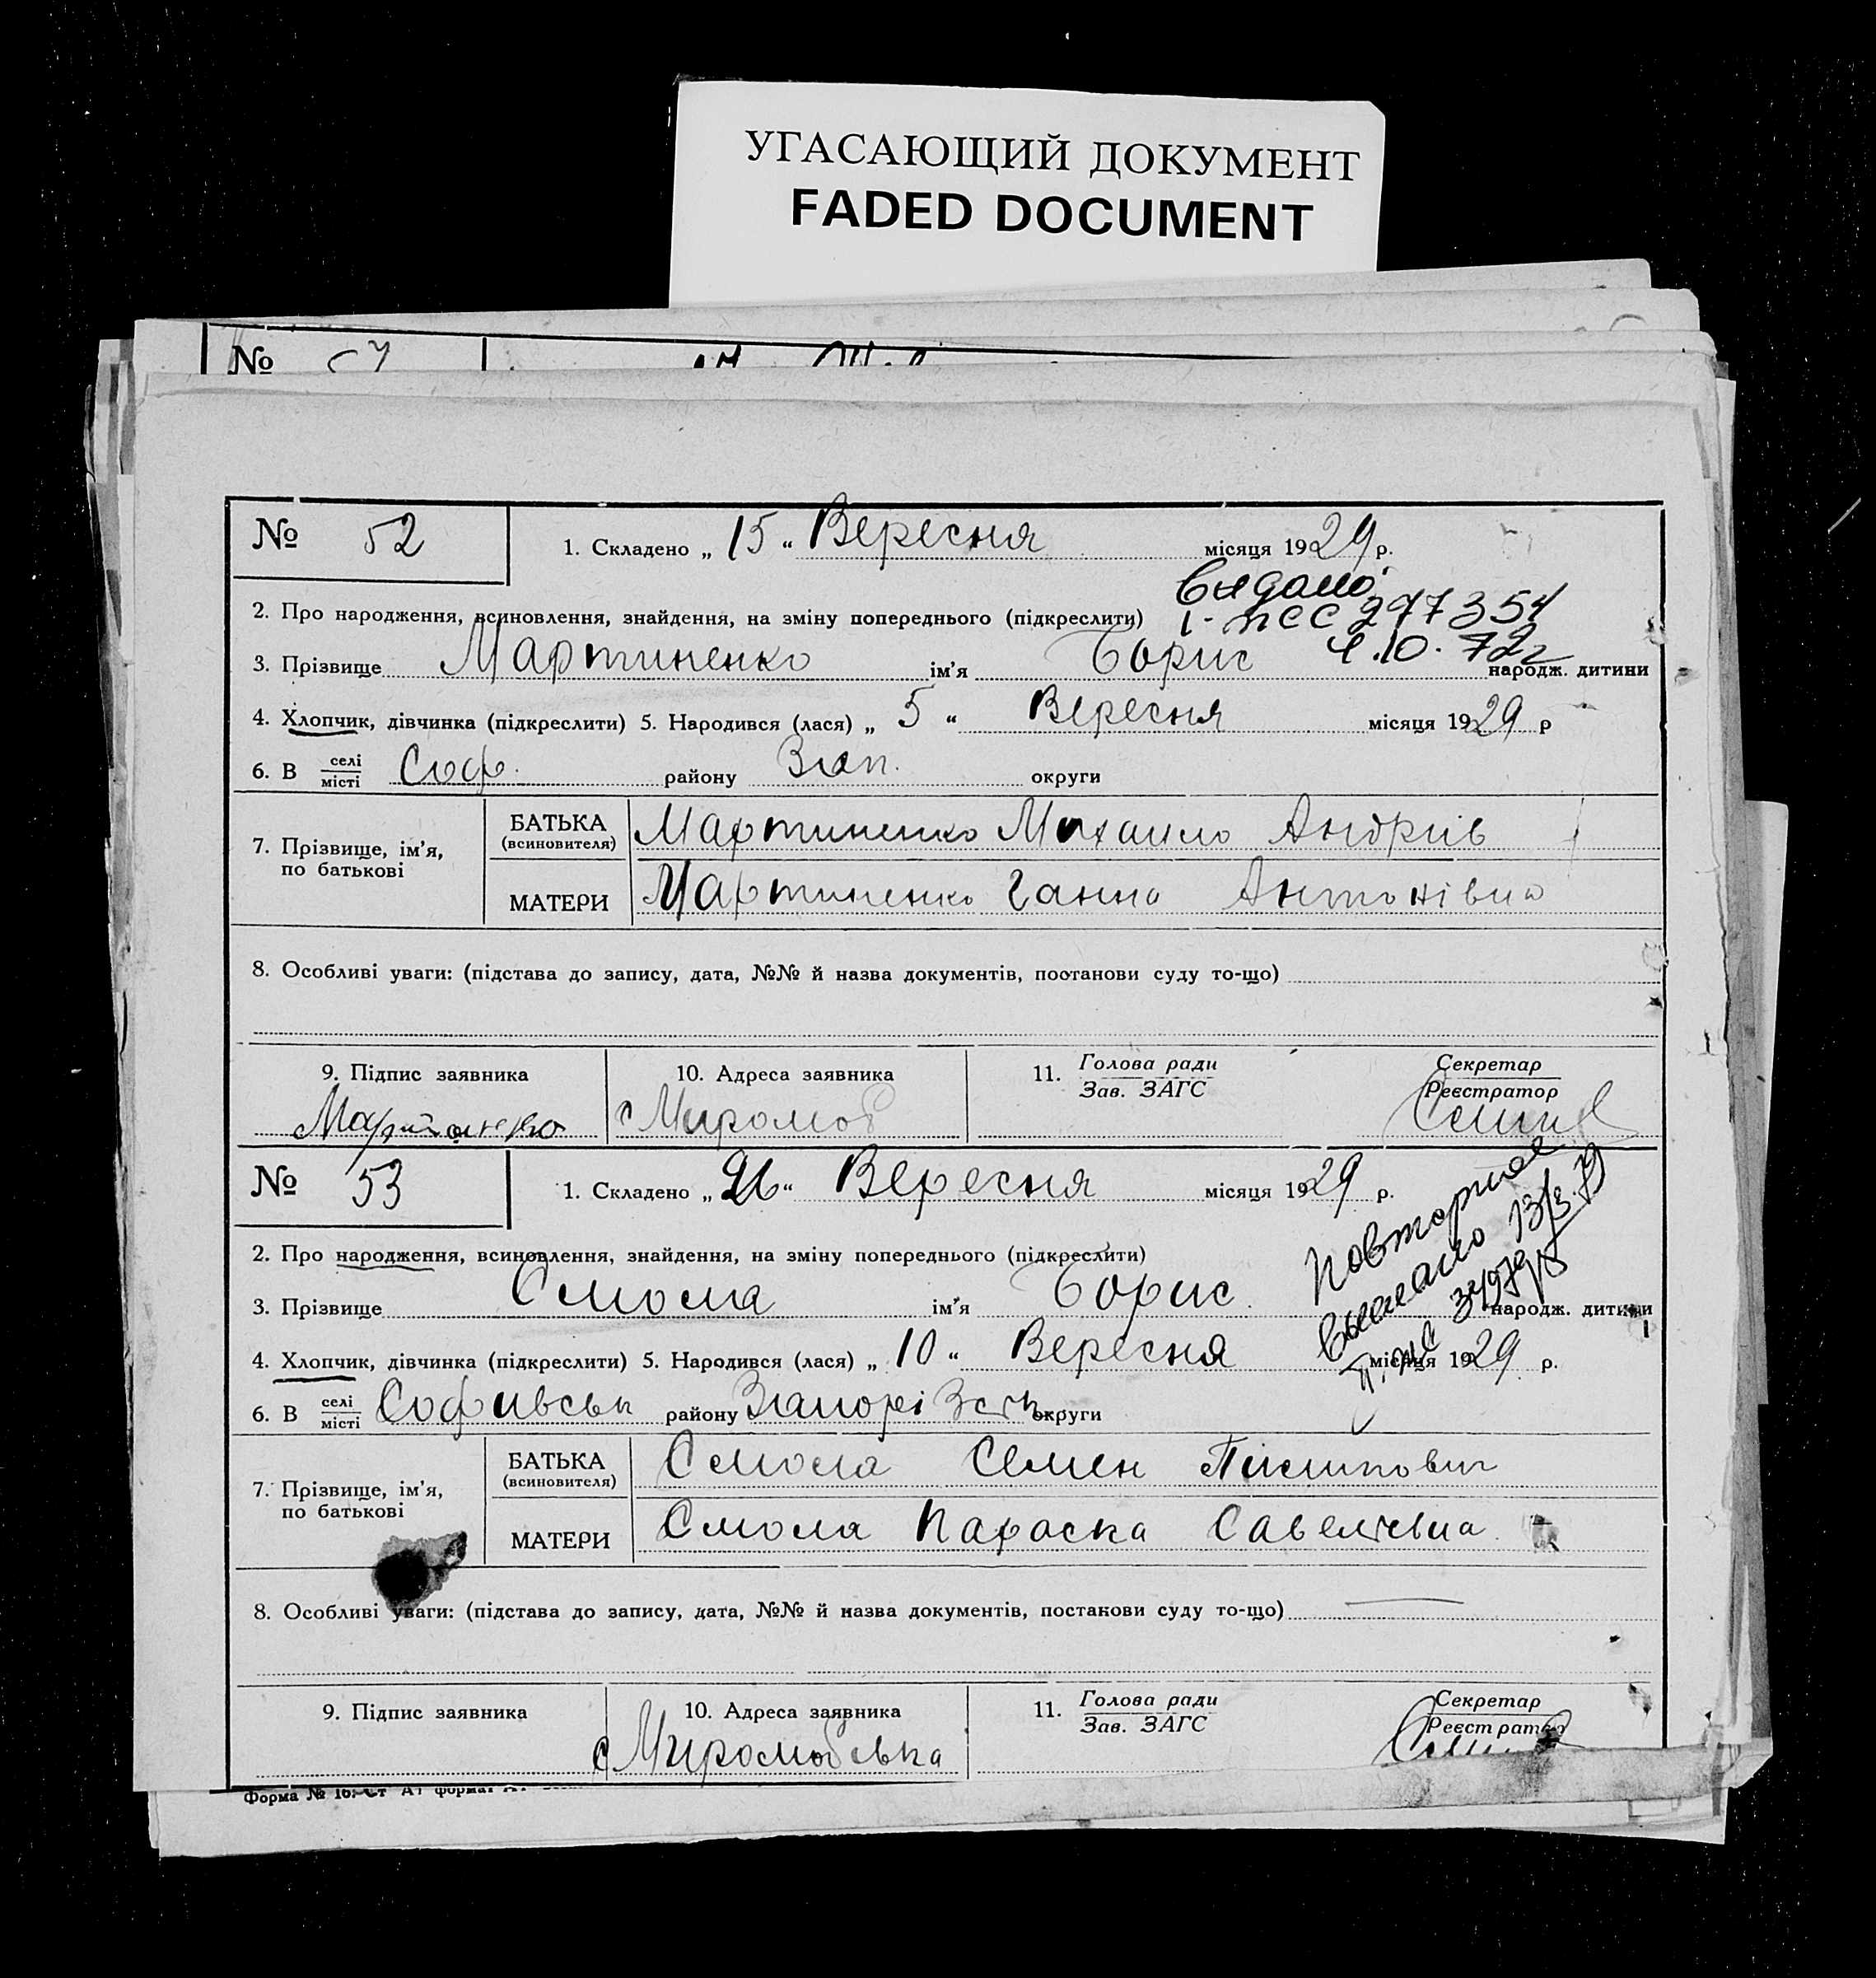 УГАСАЮЩИЙ ДОКУМЕНТ
FADED DOCUMENT
№
№ 52
1. Складено „ 15 “ Вересня місяця 1929 р.
видано
2. Про народження, всиновлення, знайдення, на зміну попереднього (підкреслити)
3. Прізвище Мартиненко ім'я Борис народж. дитини
4. Хлопчик, дівчинка (підкреслити) 5. Народився (лася) „ 5 “ Вересня місяця 1929 р
6. В селі місті Соф. району Зап. округи
7. Прізвище, ім'я, по батькові
БАТЬКА (всиновителя) Мартиненко Михаило Андріів
МАТЕРИ Мартиненко Ганна Антонівна
8. Особливі уваги: (підстава до запису, дата, №№ й назва документів, постанови суду то-що)
9. Підпис заявника
10. Адреса заявника
11. Голова ради Зав. ЗАГС
Секретар Реєстратор
с Миролюб
№ 53
1. Складено „ 26 “ Вересня місяця 1929 р.
2. Про народження, всиновлення, знайдення, на зміну попереднього (підкреслити)
3. Прізвище Смола ім'я Борис народж. дитини
4. Хлопчик, дівчинка (підкреслити) 5. Народився (лася) „ 10 “ Вересня місяця 1929 р.
6. В селі місті Софивськ району Запорізськ округи
7. Прізвище, ім'я, по батькові
БАТЬКА (всиновителя) Смола Семен
МАТЕРИ Смола Параска Савелівна
8. Особливі уваги: (підстава до запису, дата, №№ й назва документів, постанови суду то-що)
9. Підпис заявника
10. Адреса заявника
11. Голова ради Зав. ЗАГС
Секретар
с Миролюбовка
Форма № 16.